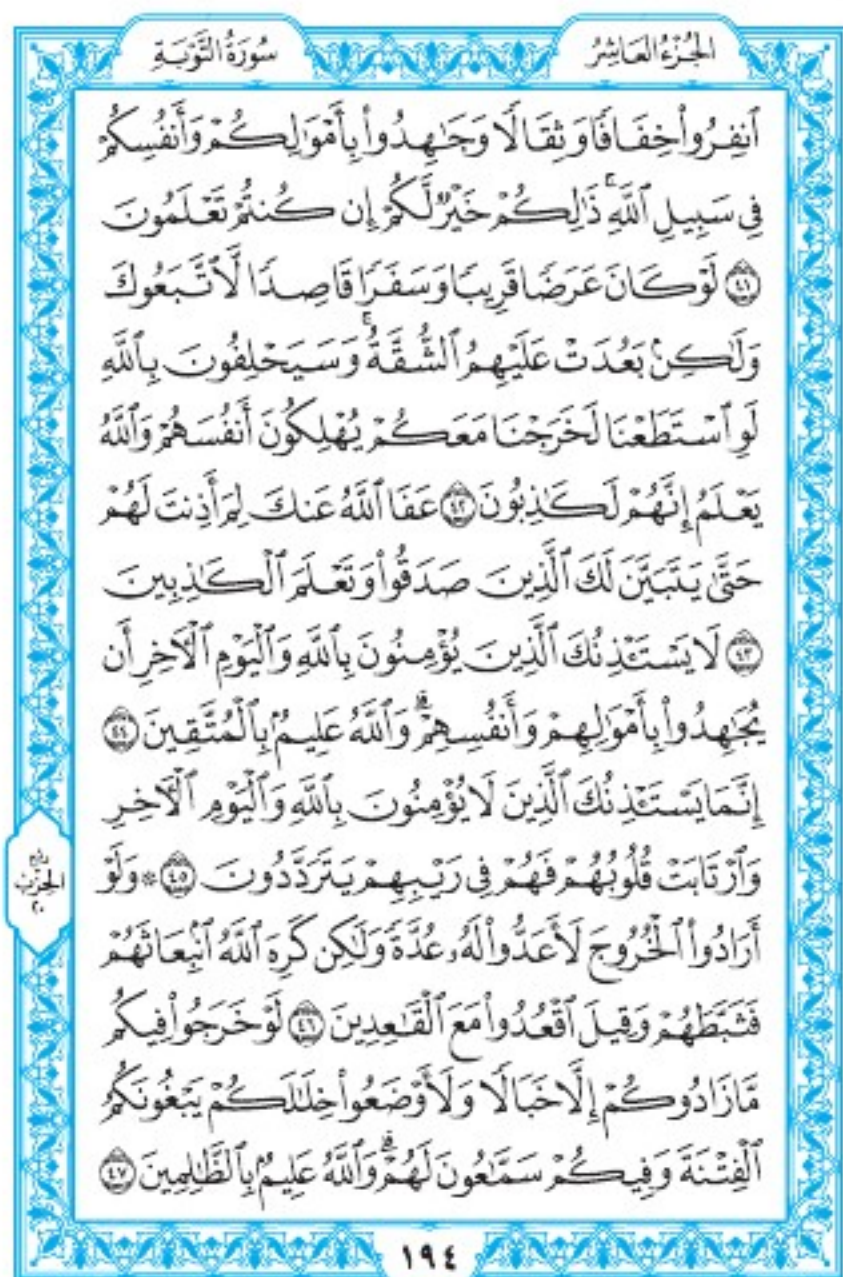 الجُزْءُ العَاشِرُ
سُورَةُ التَّوْبَةِ
ٱنفِرُوا۟ خِفَافًا وَثِقَالًا وَجَٰهِدُوا۟ بِأَمْوَٰلِكُمْ وَأَنفُسِكُمْ
فِى سَبِيلِ ٱللَّهِ ۚ ذَٰلِكُمْ خَيْرٌ لَّكُمْ إِن كُنتُمْ تَعْلَمُونَ
٤١ لَوْ كَانَ عَرَضًا قَرِيبًا وَسَفَرًا قَاصِدًا لَّٱتَّبَعُوكَ
وَلَٰكِنۢ بَعُدَتْ عَلَيْهِمُ ٱلشُّقَّةُ ۚ وَسَيَحْلِفُونَ بِٱللَّهِ
لَوِ ٱسْتَطَعْنَا لَخَرَجْنَا مَعَكُمْ يُهْلِكُونَ أَنفُسَهُمْ وَٱللَّهُ
يَعْلَمُ إِنَّهُمْ لَكَٰذِبُونَ ٤٢ عَفَا ٱللَّهُ عَنكَ لِمَ أَذِنتَ لَهُمْ
حَتَّىٰ يَتَبَيَّنَ لَكَ ٱلَّذِينَ صَدَقُوا۟ وَتَعْلَمَ ٱلْكَٰذِبِينَ
٤٣ لَا يَسْتَـْٔذِنُكَ ٱلَّذِينَ يُؤْمِنُونَ بِٱللَّهِ وَٱلْيَوْمِ ٱلْـَٔاخِرِ أَن
يُجَٰهِدُوا۟ بِأَمْوَٰلِهِمْ وَأَنفُسِهِمْ ۗ وَٱللَّهُ عَلِيمٌۢ بِٱلْمُتَّقِينَ ٤٤
إِنَّمَا يَسْتَـْٔذِنُكَ ٱلَّذِينَ لَا يُؤْمِنُونَ بِٱللَّهِ وَٱلْيَوْمِ ٱلْـَٔاخِرِ
وَٱرْتَابَتْ قُلُوبُهُمْ فَهُمْ فِى رَيْبِهِمْ يَتَرَدَّدُونَ ٤٥ * وَلَوْ
أَرَادُوا۟ ٱلْخُرُوجَ لَأَعَدُّوا۟ لَهُۥ عُدَّةً وَلَٰكِن كَرِهَ ٱللَّهُ ٱنۢبِعَاثَهُمْ
فَثَبَّطَهُمْ وَقِيلَ ٱقْعُدُوا۟ مَعَ ٱلْقَٰعِدِينَ ٤٦ لَوْ خَرَجُوا۟ فِيكُم
مَّا زَادُوكُمْ إِلَّا خَبَالًا وَلَأَوْضَعُوا۟ خِلَٰلَكُمْ يَبْغُونَكُمُ
ٱلْفِتْنَةَ وَفِيكُمْ سَمَّٰعُونَ لَهُمْ ۗ وَٱللَّهُ عَلِيمٌۢ بِٱلظَّٰلِمِينَ ٤٧
رُبع
الحِزْب
٢٠
١٩٤